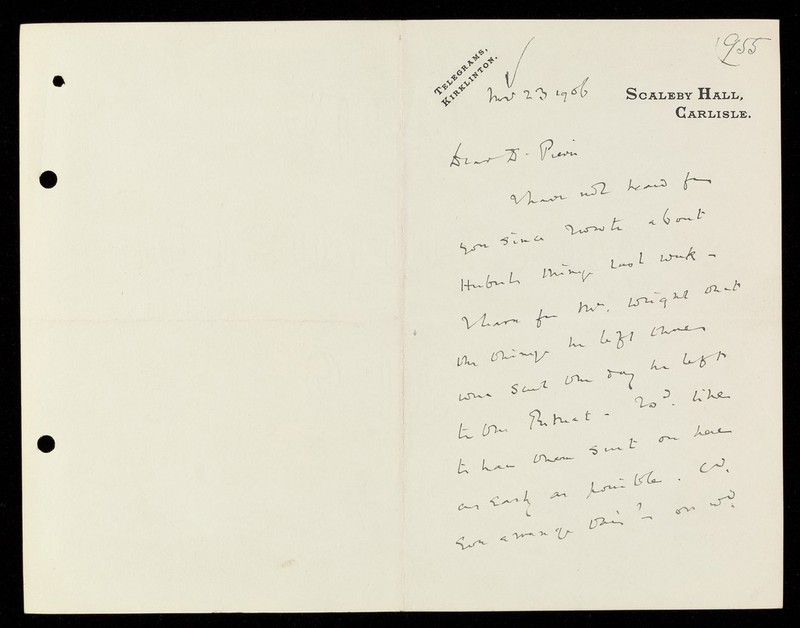 1955
TELEGRAMS,
KIRKLINTON.
Nov 23 1906
SCALEBY HALL,
CARLISLE.
Dear Dr.
I have not heard from
you since I wrote about
Huberts things last week -
I hear fm Mrs. Wright that
the things he left there
were sent the day he left
to the Retreat - I wd. like
to have them sent on here
as early as possible. Cd.
you arrange this? - or wd.